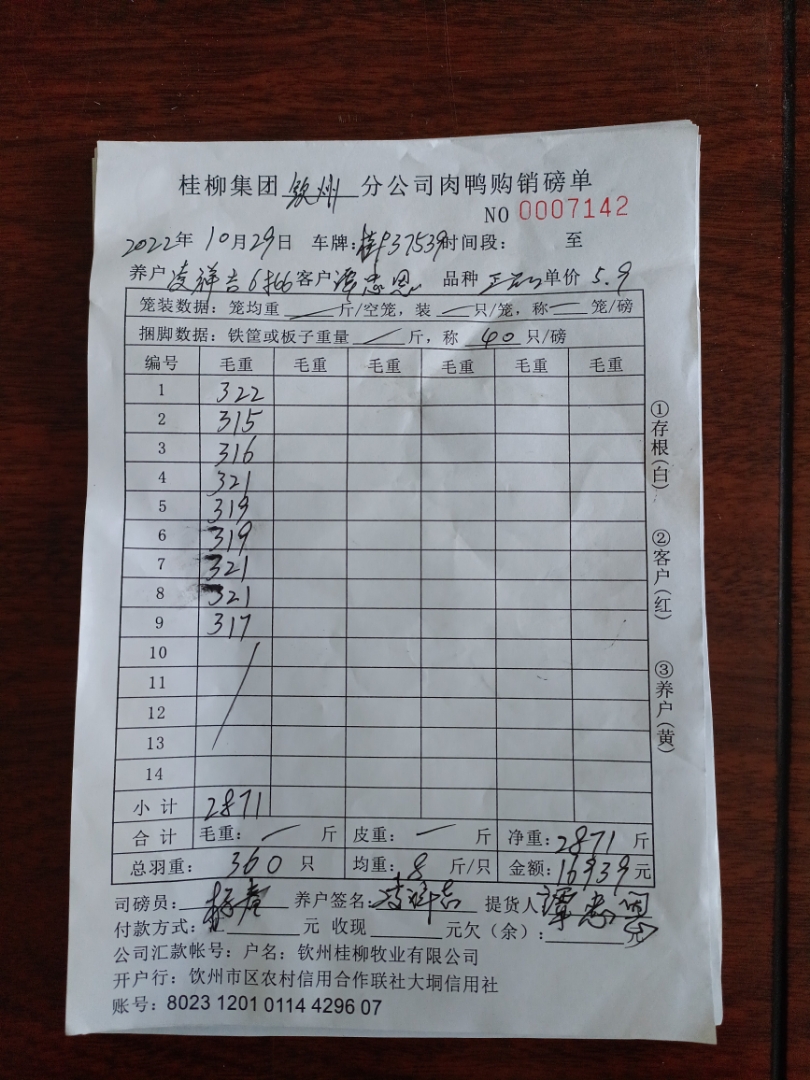 桂柳集团 钦州 分公司肉鸭购销磅单
NO 0007142
2022年 10月29日 车牌:桂P37539时间段: 至
养户 凌祥吉 客户 谭忠恩 品种 单价 5.9
笼装数据: 笼均重 斤/空笼, 装 只/笼, 称 笼/磅
捆脚数据: 铁筐或板子重量 斤, 称 40 只/磅
编号 毛重 毛重 毛重 毛重 毛重 毛重
1 322
2 315
3 316
4 321
5 319
6 319
7 321
8 321
9 317
10
11
12
13
14
小计 2871
合计 毛重: 斤 皮重: 斤 净重: 2871 斤
总羽重: 360 只 均重: 8 斤/只 金额: 16939元
司磅员: 养户签名: 凌祥吉 提货人 谭忠恩
付款方式: 元 收现 元欠(余): 元
公司汇款帐号: 户名: 钦州桂柳牧业有限公司
开户行: 钦州市区农村信用合作联社大垌信用社
账号: 8023 1201 0114 4296 07
①存根(白)
②客户(红)
③养户(黄)